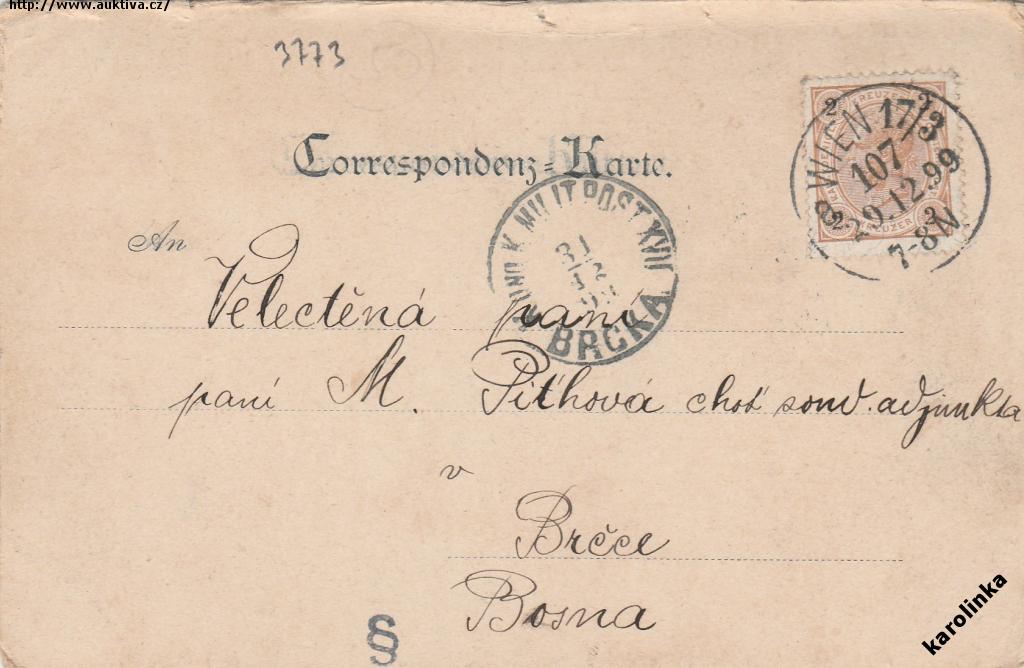 http://www.auktiva.cz/
3773
Correspondenz-Karte.
2 KREUZER 2
2 KREUZER 2
WIEN 17/3
107
29.12.99
7-8N
K. MILITPOST XVII
31
12
BRČKA
An
Velectěná paní
paní M. Píthová choť soud. adjunkta
v
Brčce
Bosna
§
karolinka